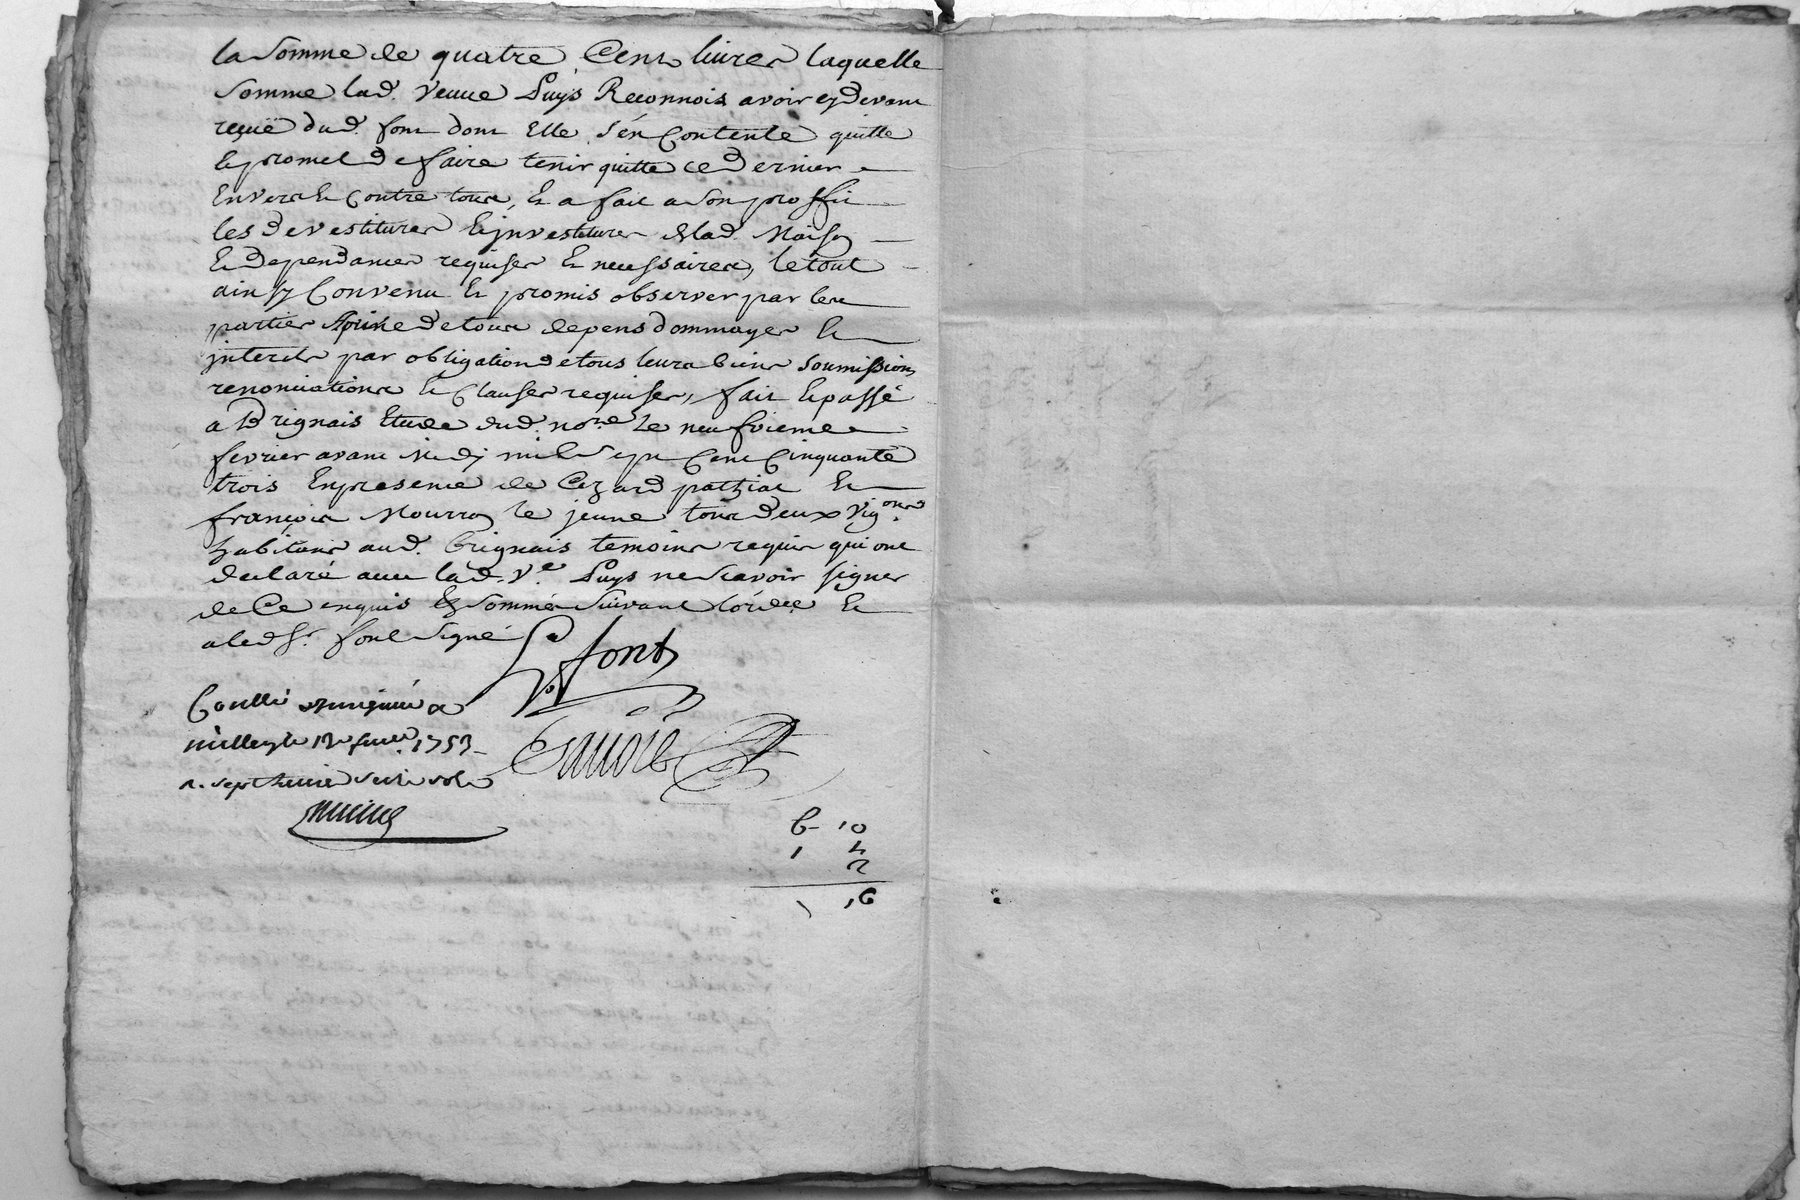 la somme de quatre Cent livres laquelle
somme lad. veuve Puys Reconnois avoir cy devant
reçüe dud. font dont Elle s'en Contente quitte
et promet de faire tenir quitte ce dernier
Envers et Contre tous, Et a fait a son proffit
les devestitures et jnvestitures de lad. Maison
Et dependances requises Et necessaires, le tout
ainsy Convenu Et promis observer par les
parties a peine de tous depens dommages Et
jnterets par obligation de tous leurs biens soumissions
renonciations Et Clauses requises, fait et passé
a Brignais Etude dud. nore Le neufvieme
fevrier avant Midy mil sept Cent Cinquante
trois En presence de Cezard Et
françois Mourron le jeune tous deux Vignons
habitans aud. Brignais temoins requis qui ont
declaré avec lad. Ve. Puys ne scavoir signer
de Ce enquis Et sommés suivant lordce Et
a led Sr. font signé
font
Conllé a
millery le 13e fevr. 1753
r. sept livres seize sols
6 10
1 4
2
16